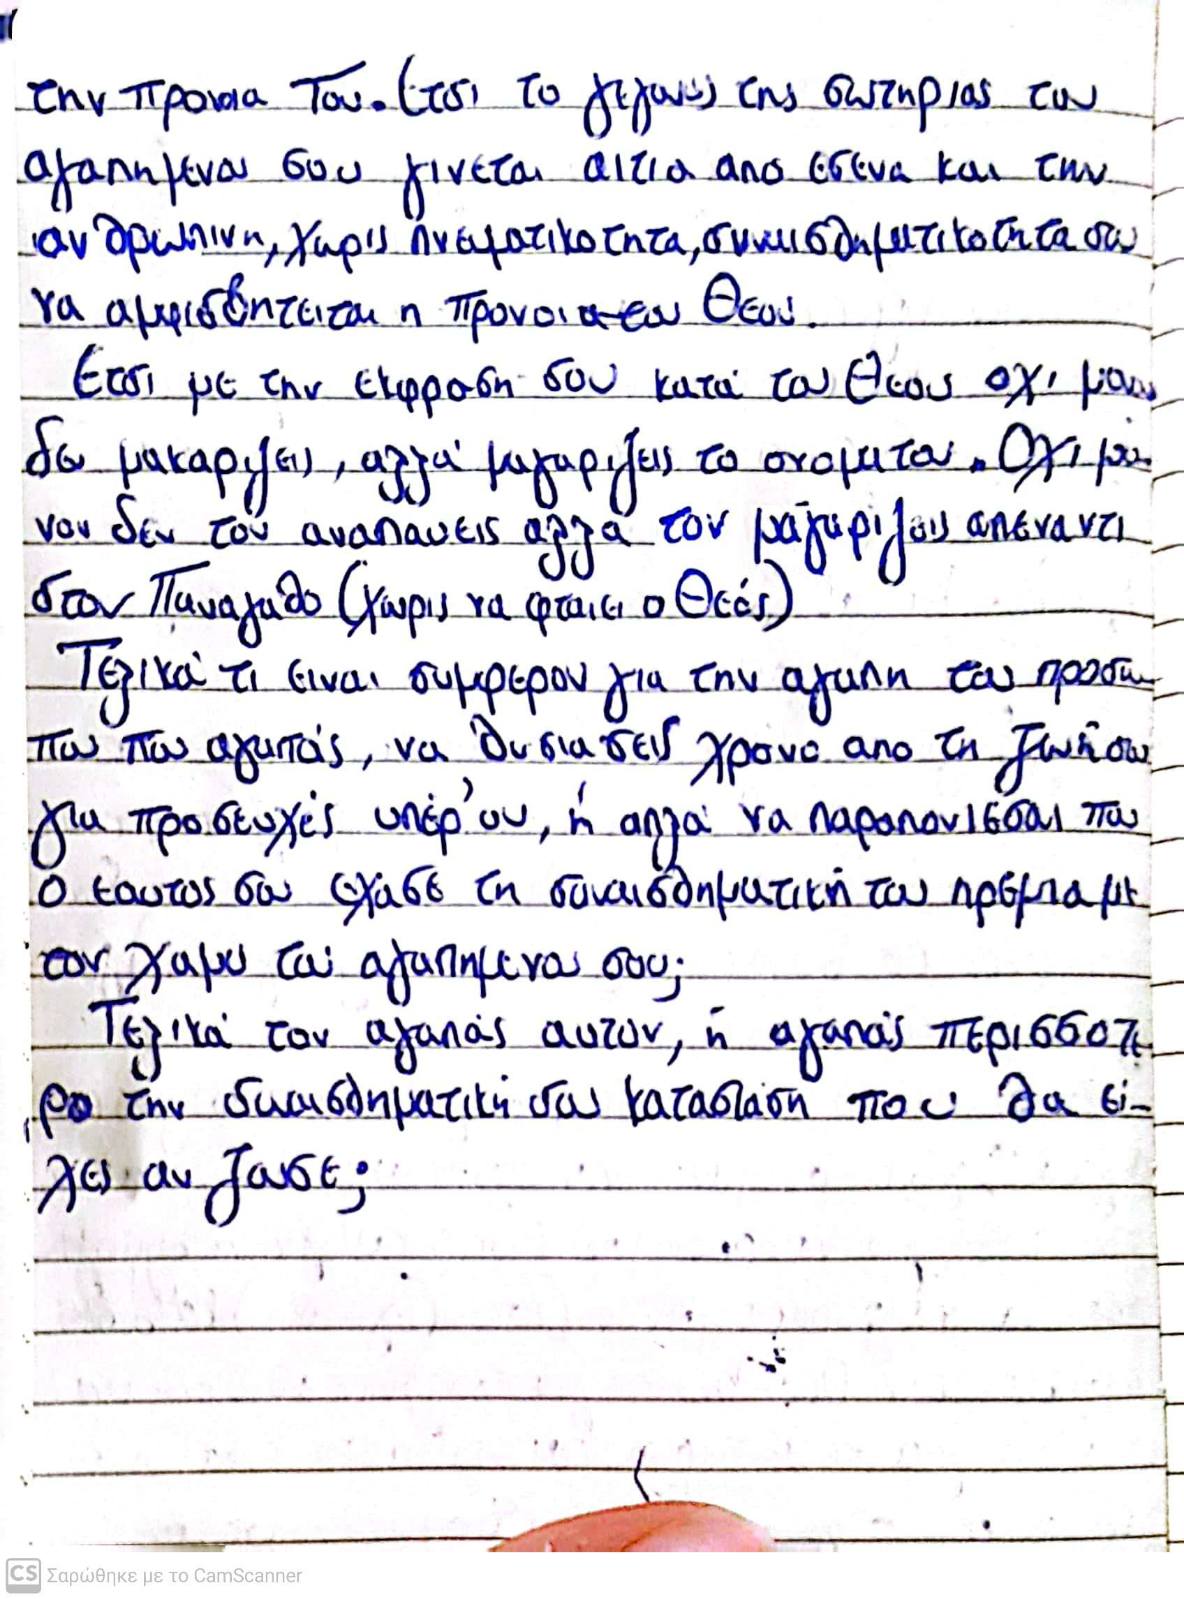 την προνοια Του. Ετσι το γεγονός της σωτηριας του
αγαπημενου σου γινεται αιτια απο εσενα και την
ανθρωπινη, χωρις πνευματικοτητα, συναισθηματικοτητα σου
να αμφισβητειται η προνοια του Θεου.
Ετσι με την εκφραση σου κατά του Θεου οχι μονο
δεν μακαριζεις, αλλά μαγαριζεις το ονομα του. Οχι μο-
νον δεν τον αναπαυεις αλλα τον μαγαριζεις απεναντι
στον Παναγαθο (χωρις να φταιει ο Θεός)
Τελικά τι ειναι συμφερον για την αγαπη του προσω-
που που αγαπάς, να θυσιασεις χρονο απο τη ζωή σου
για προσευχές υπέρ'ου, ή αλλά να παραπονιέσαι που
ο εαυτος σου έχασε τη συναισθηματική του ηρεμια με
τον χαμο του αγαπημενου σου;
Τελικά τον αγαπάς αυτον, ή αγαπάς περισσοτε
ρο την συναισθηματική σου κατασταση που θα εί-
χες αν ζουσε;
CS Σαρώθηκε με το CamScanner